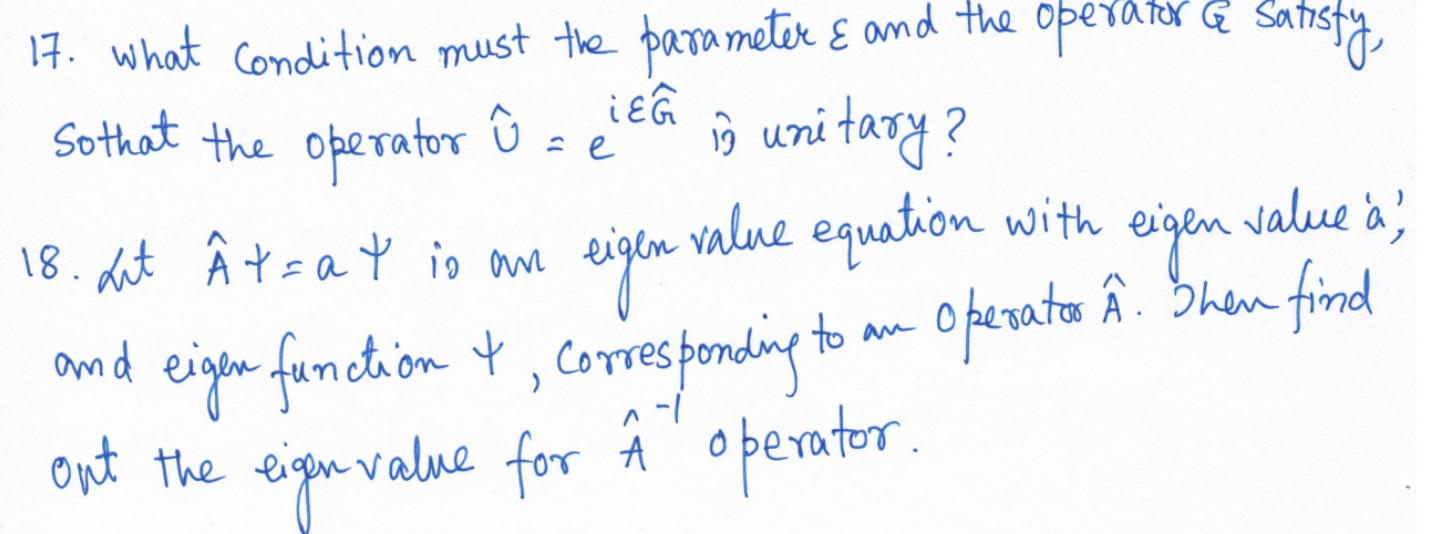 17. What Condition must the parameter ε and the operator G satisfy,
Sothat the operator Û = e^{iεĜ} is unitary?
18. Let Âψ = aψ is an eigen value equation with eigen value 'a',
and eigen function ψ, Corresponding to an Operator Â. Then find
out the eigen value for Â^{-1} operator.